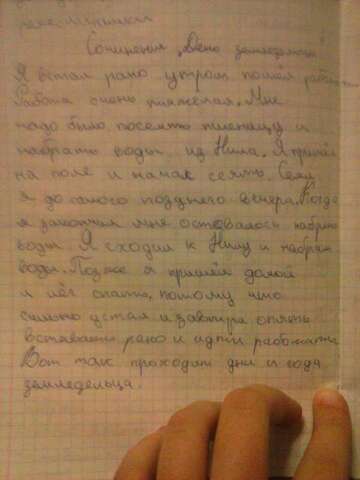 ремесленником
Сочинение „День земледельца"
Я встал рано утром пошёл работать
Работа очень тяжёлая. Мне
надо было посеять пшеницу и
набрать воды из Нила. Я пришёл
на поле и начал сеять. Сеял
я до самого позднего вечера. Когда
я закончил мне оставалось набрать
воды. Я сходил к Нилу и набрал
воды. Позже я пришёл домой
и лёг спать, потому что
сильно устал и завтра опять
вставать рано и идти работать
Вот так проходят дни и года
земледельца